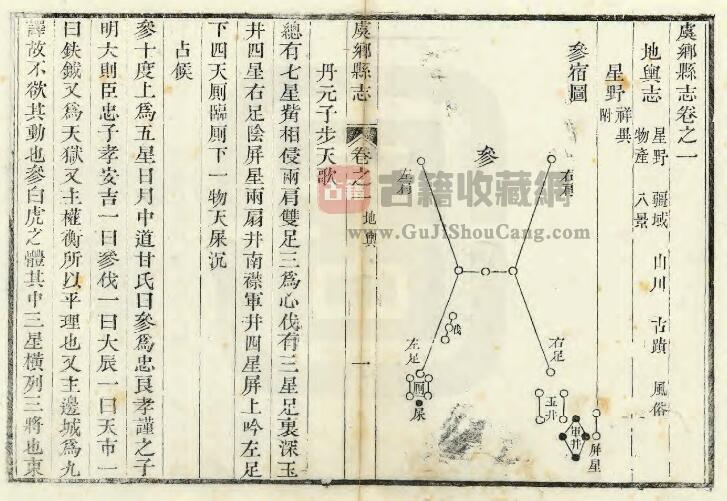 虞鄉縣志卷之一
地輿志 星野 疆域 山川 古蹟 風俗
物產 八景
星野 祥異附
參宿圖
參
右肩
左肩
伐
右足
左足
廁
屎
玉井
軍井
屏星
虞鄉縣志 卷之一 地輿 一
丹元子步天歌
總有七星觜相侵兩肩雙足三爲心伐有三星足裏深玉
井四星右足陰屏星兩扇井南襟軍井四星屏上吟左足
下四天廁臨廁下一物天屎沉
占候
參十度上爲五星日月中道甘氏曰參爲忠良孝謹之子
明大則臣忠子孝安吉一曰參伐一曰大辰一曰天市一
曰鈇鉞又爲天獄又主權衡所以平理也又主邊城爲九
譯故不欲其動也參白虎之體其中三星橫列三將也東
古籍
古籍收藏網
www.GuJiShouCang.com